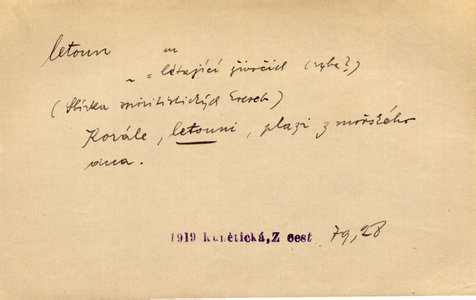 letoun "'
~ = létající živočich (ryba?)
(Sbírka spiritistických kreseb)
Korále, letouni, plazi z mořského
dna.
1919 Kunětická,Z cest 79,28